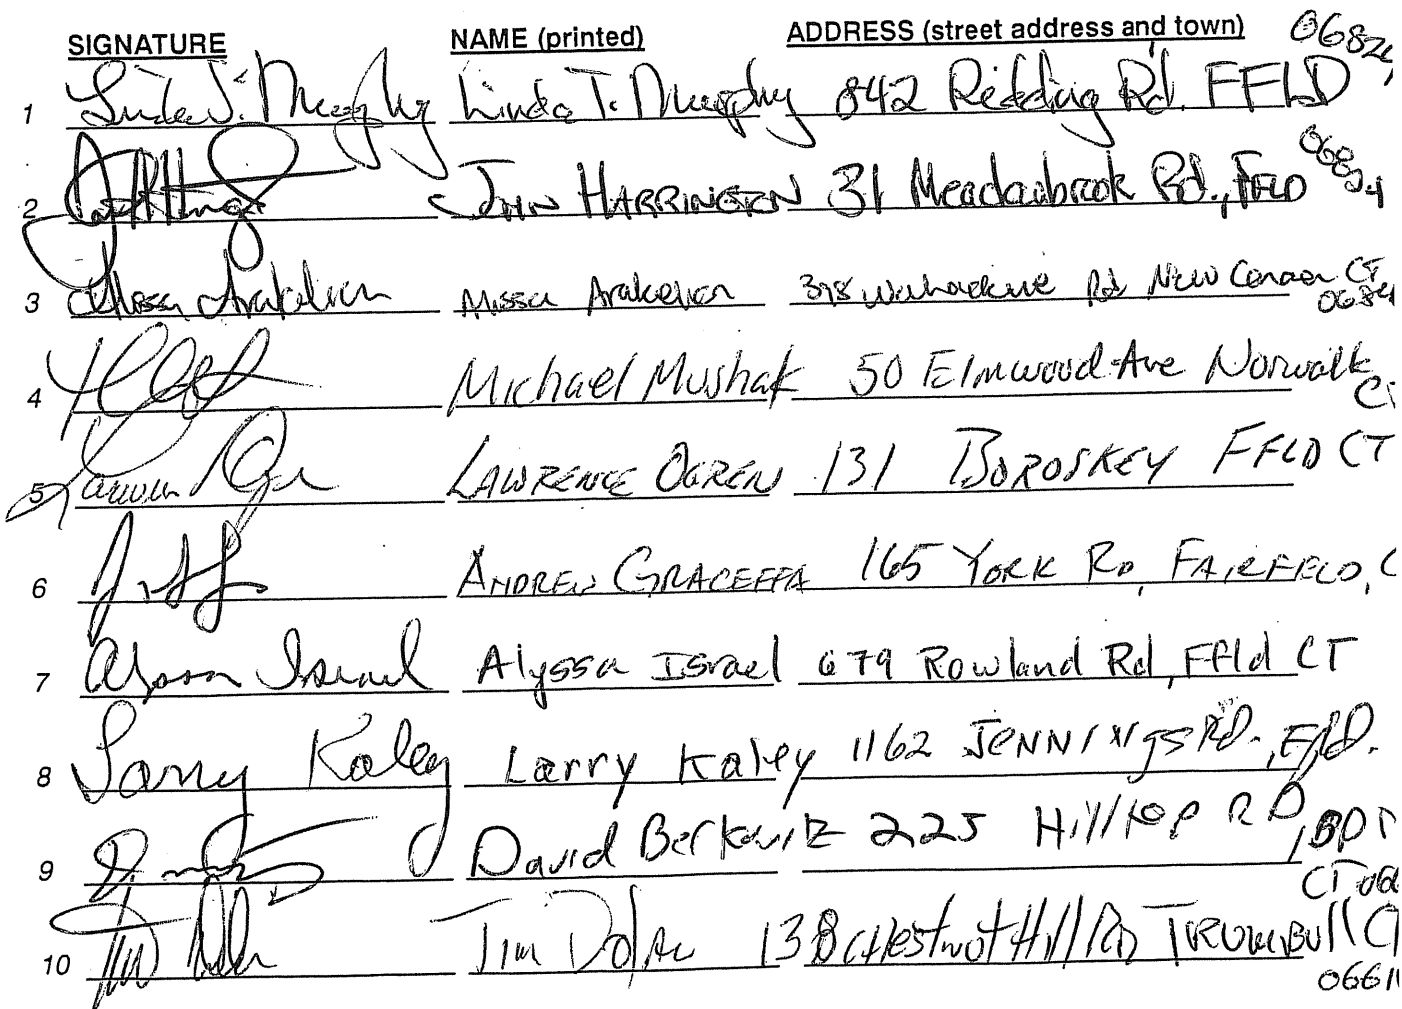 SIGNATURE NAME (printed) ADDRESS (street address and town) 06824
1 Linda T. Murphy Linda T. Murphy 842 Redding Rd. FFLD
2 JOHN HARRINGTON 31 Meadowbrook Rd., FFLD 06824
3 Missa Arakelian Missa Arakelian 398 New Canaan CT
0684
4 Michael Mushak 50 Elmwood Ave Norwalk
CT
5 LAWRENCE OGREN 131 BOROSKEY FFLD CT
6 ANDREW GRACEFFA 165 YORK RD, FAIRFIELD, C
7 Alyssa Israel Alyssa Israel 679 Rowland Rd, Ffld CT
8 Larry Kaley Larry Kaley 1162 JENNINGS RD., Ffld.
9 David Berkowitz 225 Hilltop RD, BPT
CT 066
10 Tim Dolan 138 CHestnut Hill Rd TRUMBull CT
06611